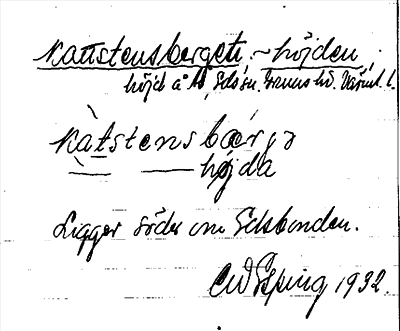 Kattstensberget, ~höjden,
höjd å Ås, Eds sn. Grums hd. Värml. l.
kàtstensbærjə
höjda
Ligger söder om Edsbonden.
CW Esping 1932.